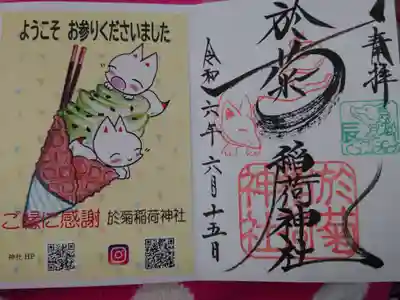 ようこそ お参りくださいました
ご縁に感謝 於菊稲荷神社
神社 HP
奉拝
於菊稲荷神社
令和六年 六月十五日
辰
於菊
神社